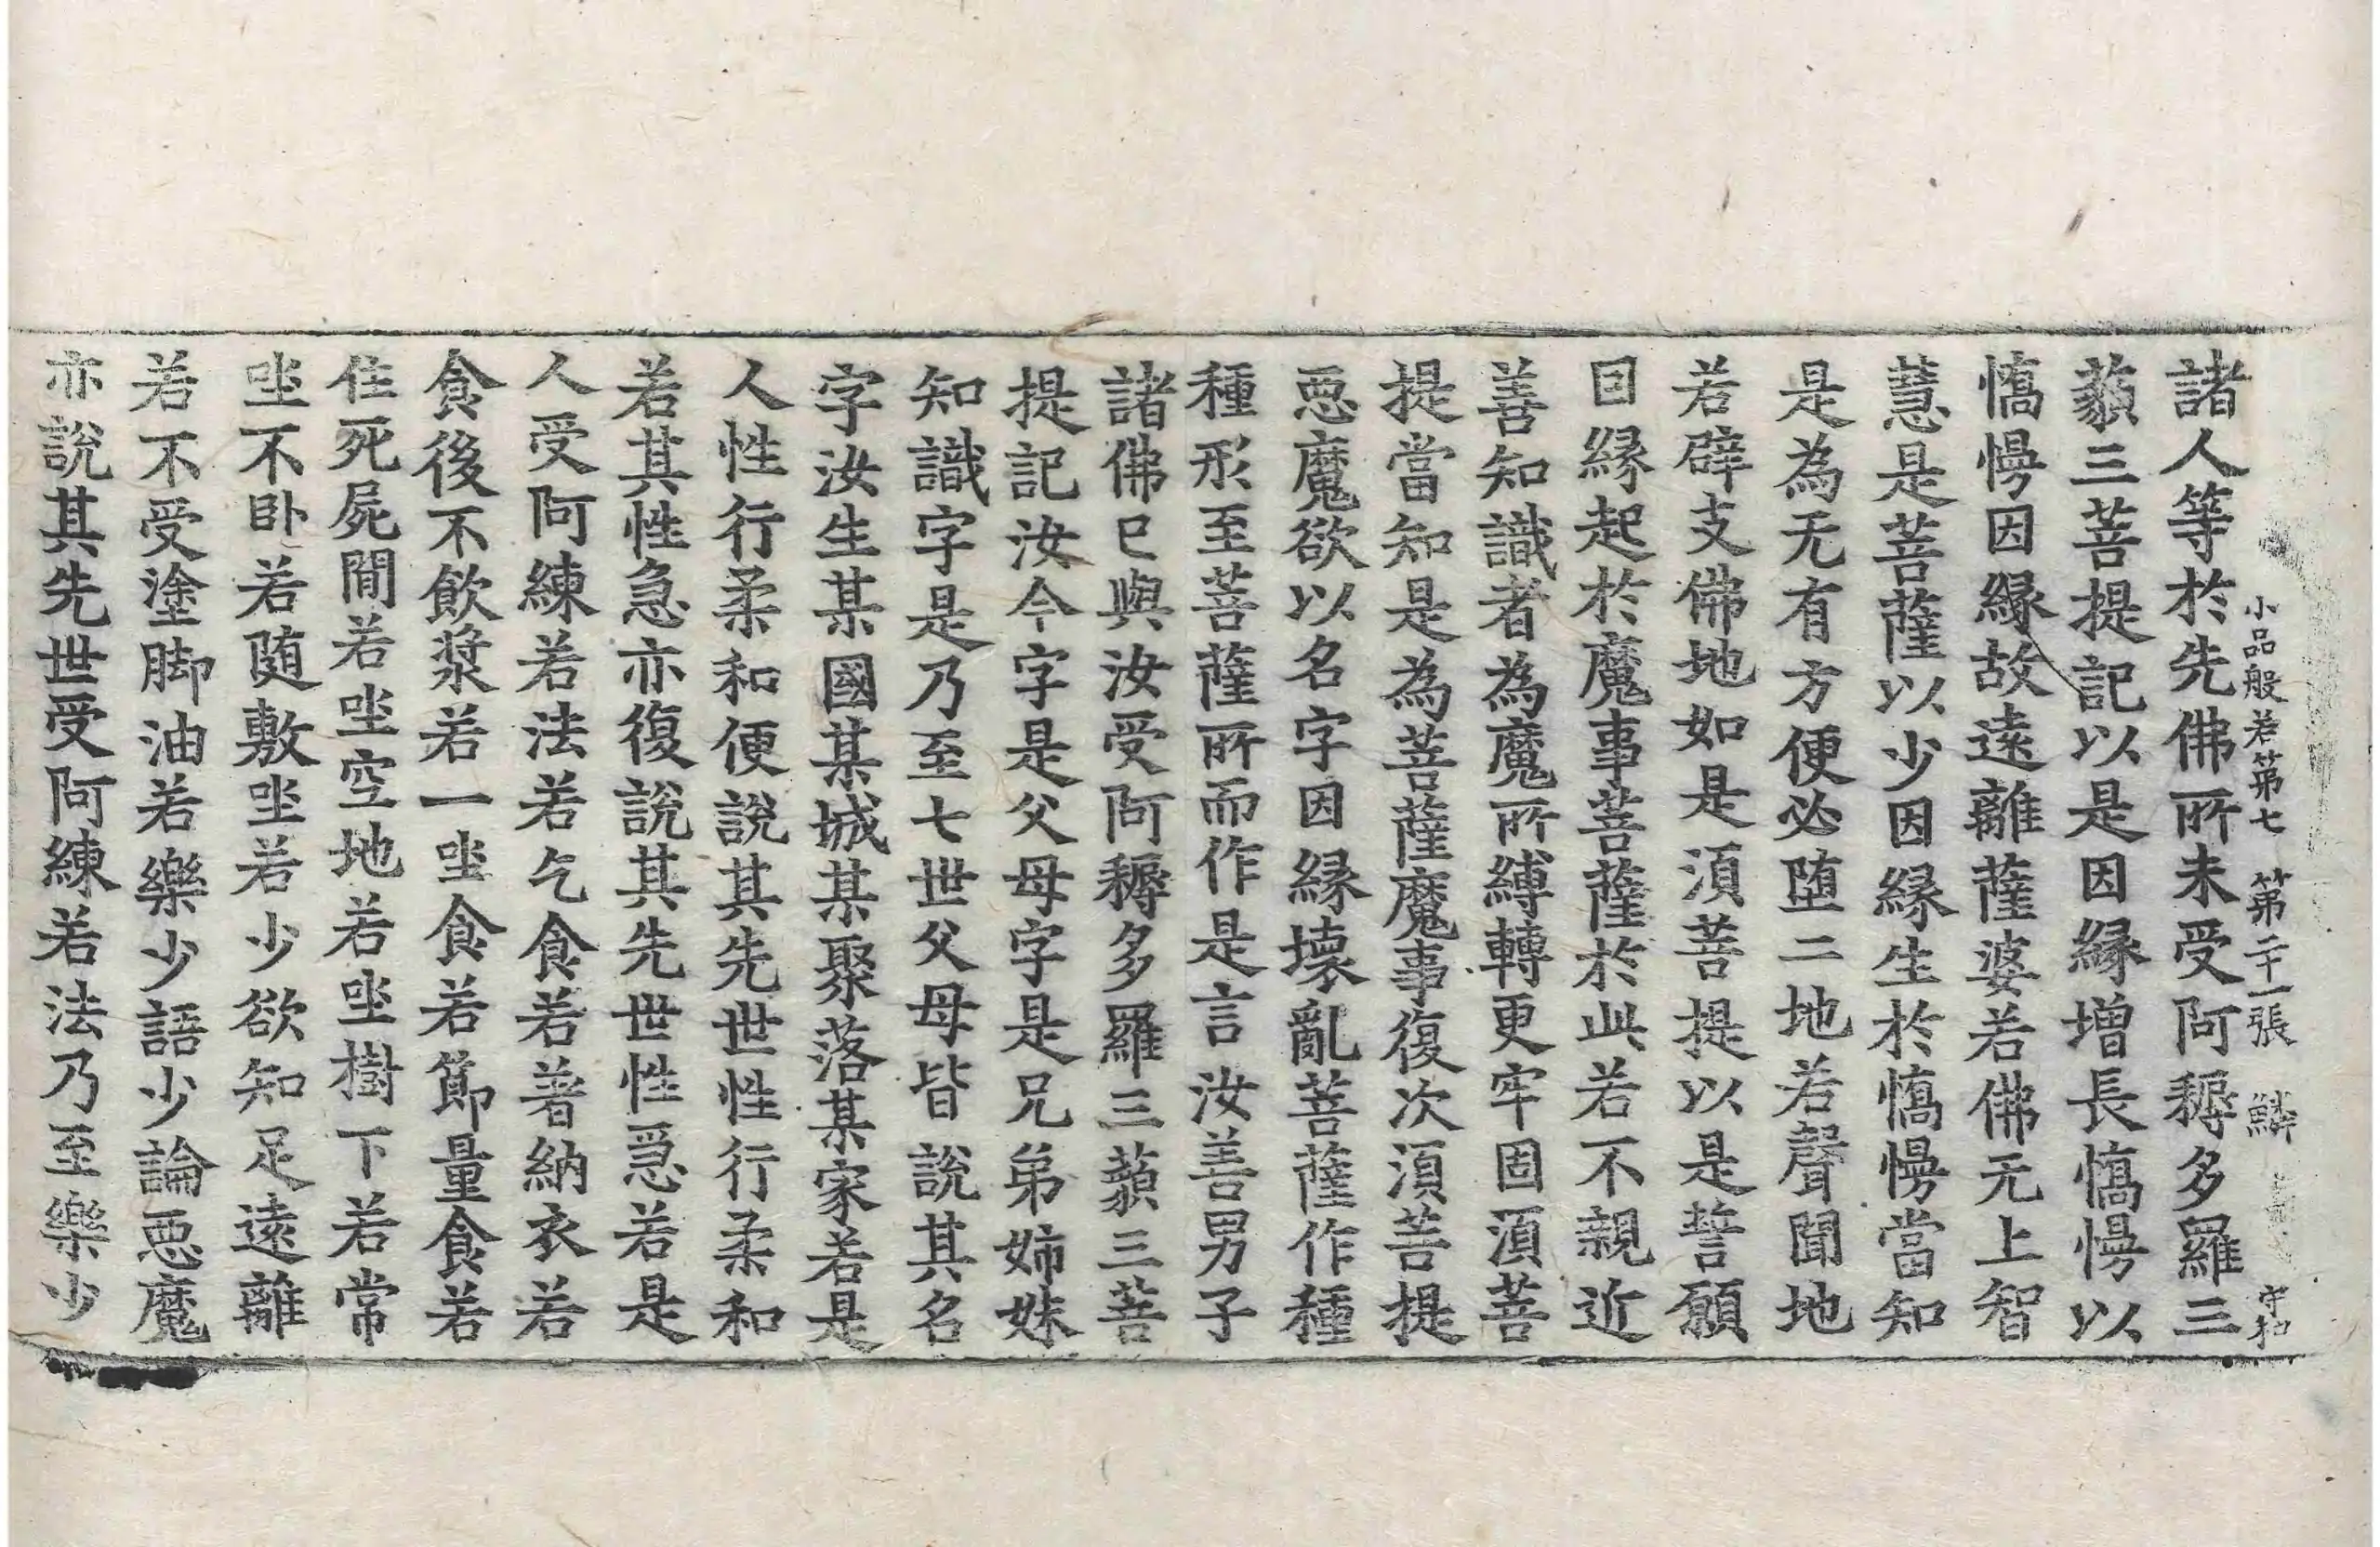 小品般若第七 第二十一張 鱗 守和
諸人等於先佛所未受阿耨多羅三
藐三菩提記以是因縁增長憍慢以
憍慢因縁故遠離薩婆若佛无上智
慧是菩薩以少因縁生於憍慢當知
是為无有方便必堕二地若聲聞地
若辟支佛地如是湏菩提以是誓願
因縁起於魔事菩薩於此若不親近
善知識者為魔所縛轉更牢固湏菩
提當知是為菩薩魔事復次湏菩提
惡魔欲以名字因縁壊亂菩薩作種
種形至菩薩所而作是言汝善男子
諸佛已與汝受阿耨多羅三藐三菩
提記汝今字是父母字是兄弟姉妹
知識字是乃至七世父母皆說其名
字汝生某國某城某聚落某家若是
人性行柔和便說其先世性行柔和
若其性急亦復說其先世性急若是
人受阿練若法若乞食若著納衣若
食後不飲漿若一坐食若節量食若
住死屍閒若坐空地若坐樹下若常
坐不卧若随敷坐若少欲知足遠離
若不受塗脚油若樂少語少論惡魔
亦說其先世受阿練若法乃至樂少